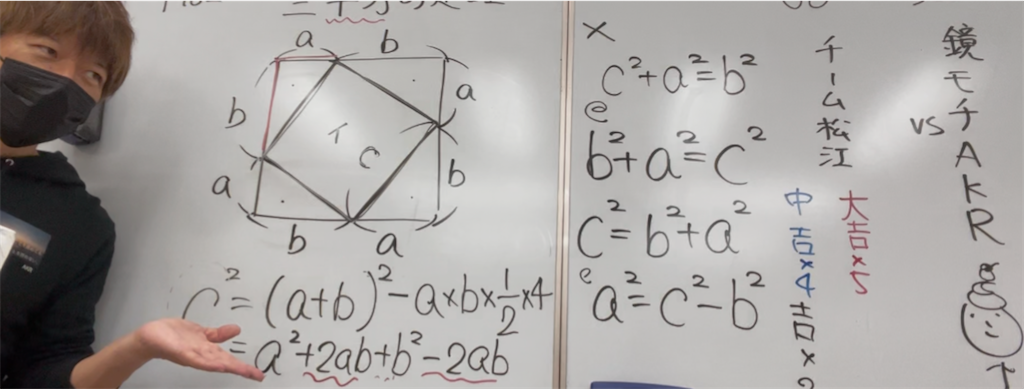 a b
b a
イ
C
a b
b a
c² = (a+b)² - a×b×1/2×4
= a²+2ab+b²-2ab
×
c²+a²=b²
e
b²+a²=c²
c²=b²+a²
e
a²=c²-b²
チーム松江
中吉×4
大吉×5
vs
鏡モチAKR